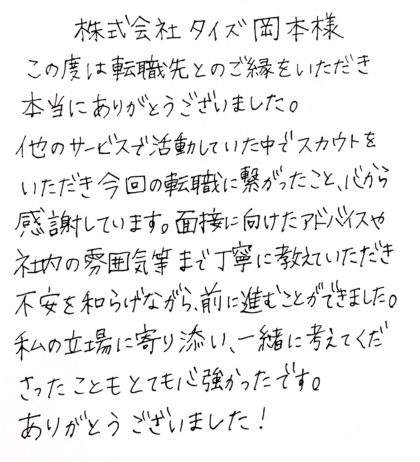 株式会社タイズ岡本様
この度は転職先とのご縁をいただき
本当にありがとうございました。
他のサービスで活動していた中でスカウトを
いただき今回の転職に繋がったこと、心から
感謝しています。面接に向けたアドバイスや
社内の雰囲気等まで丁寧に教えていただき
不安を和らげながら、前に進むことができました。
私の立場に寄り添い、一緒に考えてくだ
さったこともとても心強かったです。
ありがとうございました！